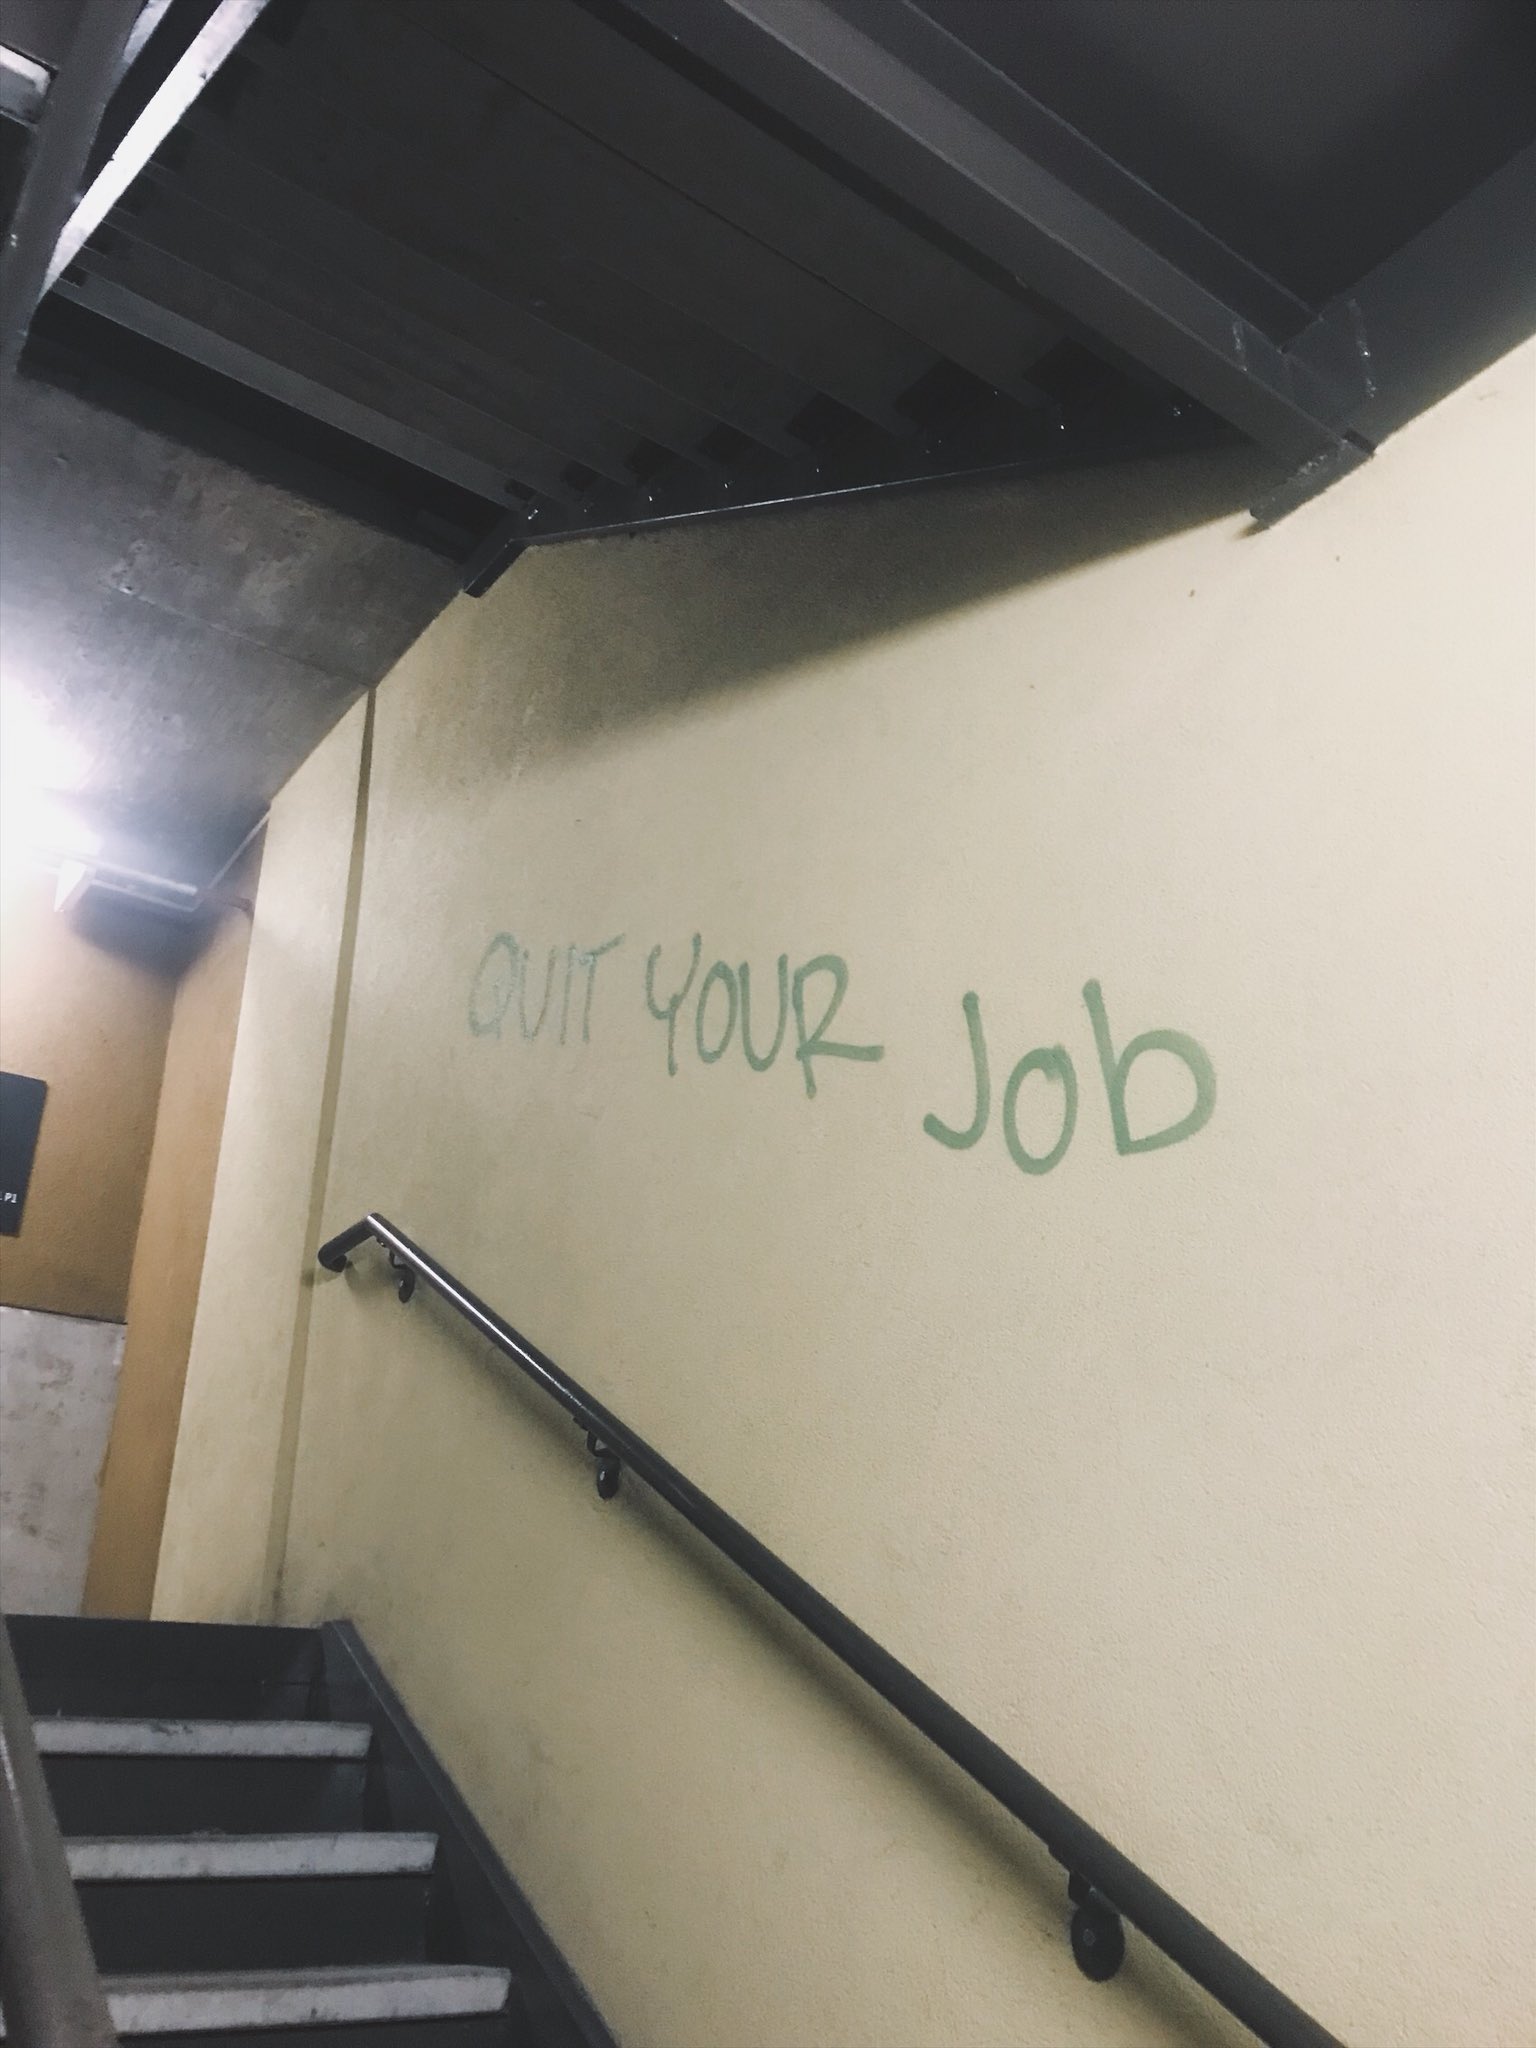 QUIT YOUR Job
P1